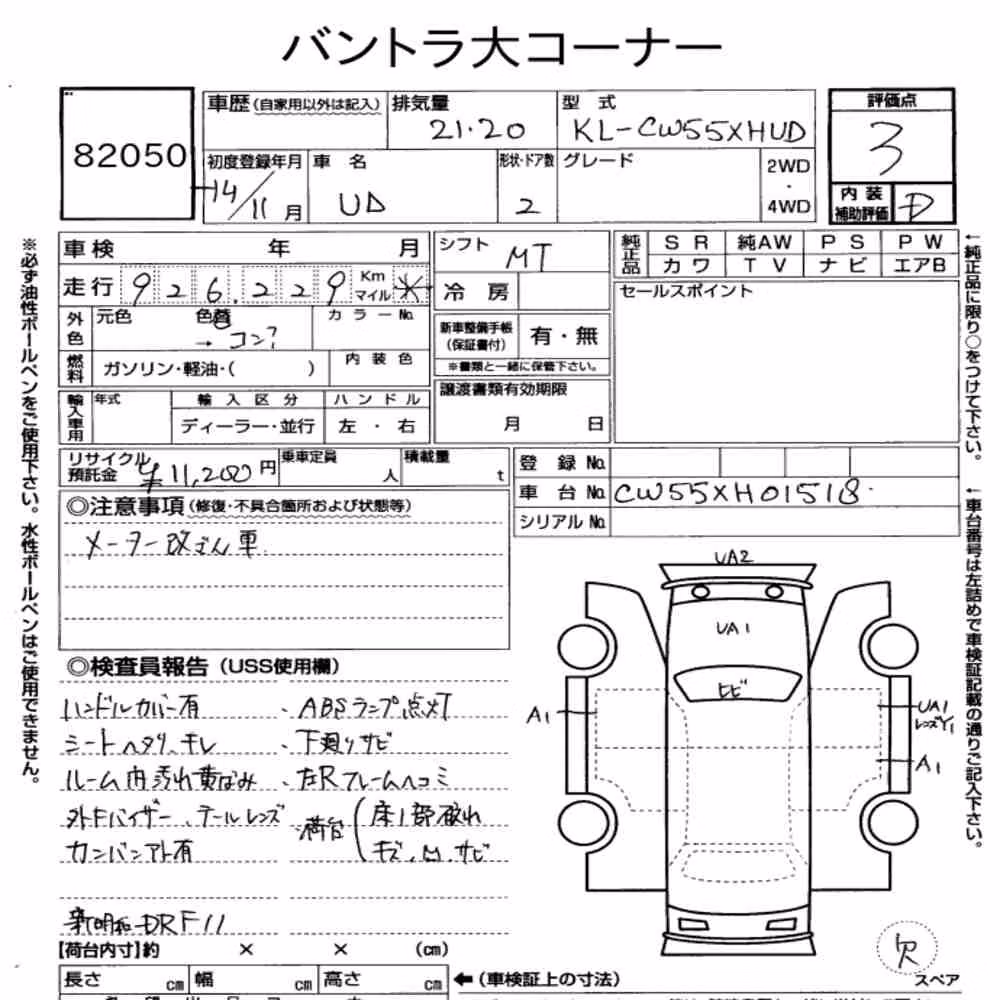 バントラ大コーナー
82050
車歴 (自家用以外は記入)
排気量
21.20
型 式
KL-CW55XHUD
評価点
3
初度登録年月
14/11 月
車 名
UD
形状・ドア数
2
グレード
2WD
・
4WD
内 装
補助評価
D
車 検 年 月
走行 926,229 Km マイル ※
外色 元色 色替 → コン? カラーNo.
燃料 ガソリン・軽油・( ) 内装色
輸入車用 年式 輸入区分 ハンドル
ディーラー・並行 左・右
シフト MT
冷 房
新車整備手帳
(保証書付)
有・無
※書類と一緒に保管下さい。
譲渡書類有効期限
月 日
純正品 S R 純AW P S P W
カ ワ T V ナ ビ エアB
セールスポイント
リサイクル
預託金 ¥11,200 円
乗車定員 人
積載量 t
登 録 No.
車 台 No. CW55XH01518
シリアル No.
◎注意事項 (修復・不具合箇所および状態等)
メーター改ざん車
◎検査員報告 (USS使用欄)
ハンドルカバー有 ・ABSランプ点灯
シートヘタリ、キレ ・下廻りサビ
ルーム内汚れ黄ばみ ・左Rフレームヘコミ
外Fバイザー、テールレンズ
カンバンアト有
・荷台 (床1部破れ
キズ、M、サビ
新明和 DRF11
【荷台内寸】約 × × (cm)
長さ cm 幅 cm 高さ cm
←(車検証上の寸法)
UA2
UA1
ヒビ
A1
UA1
レンズY1
A1
欠
スペア
※必ず油性ボールペンをご使用下さい。水性ボールペンはご使用できません。
←純正品に限り○をつけて下さい。
←車台番号は左詰めで車検証記載の通りご記入下さい。